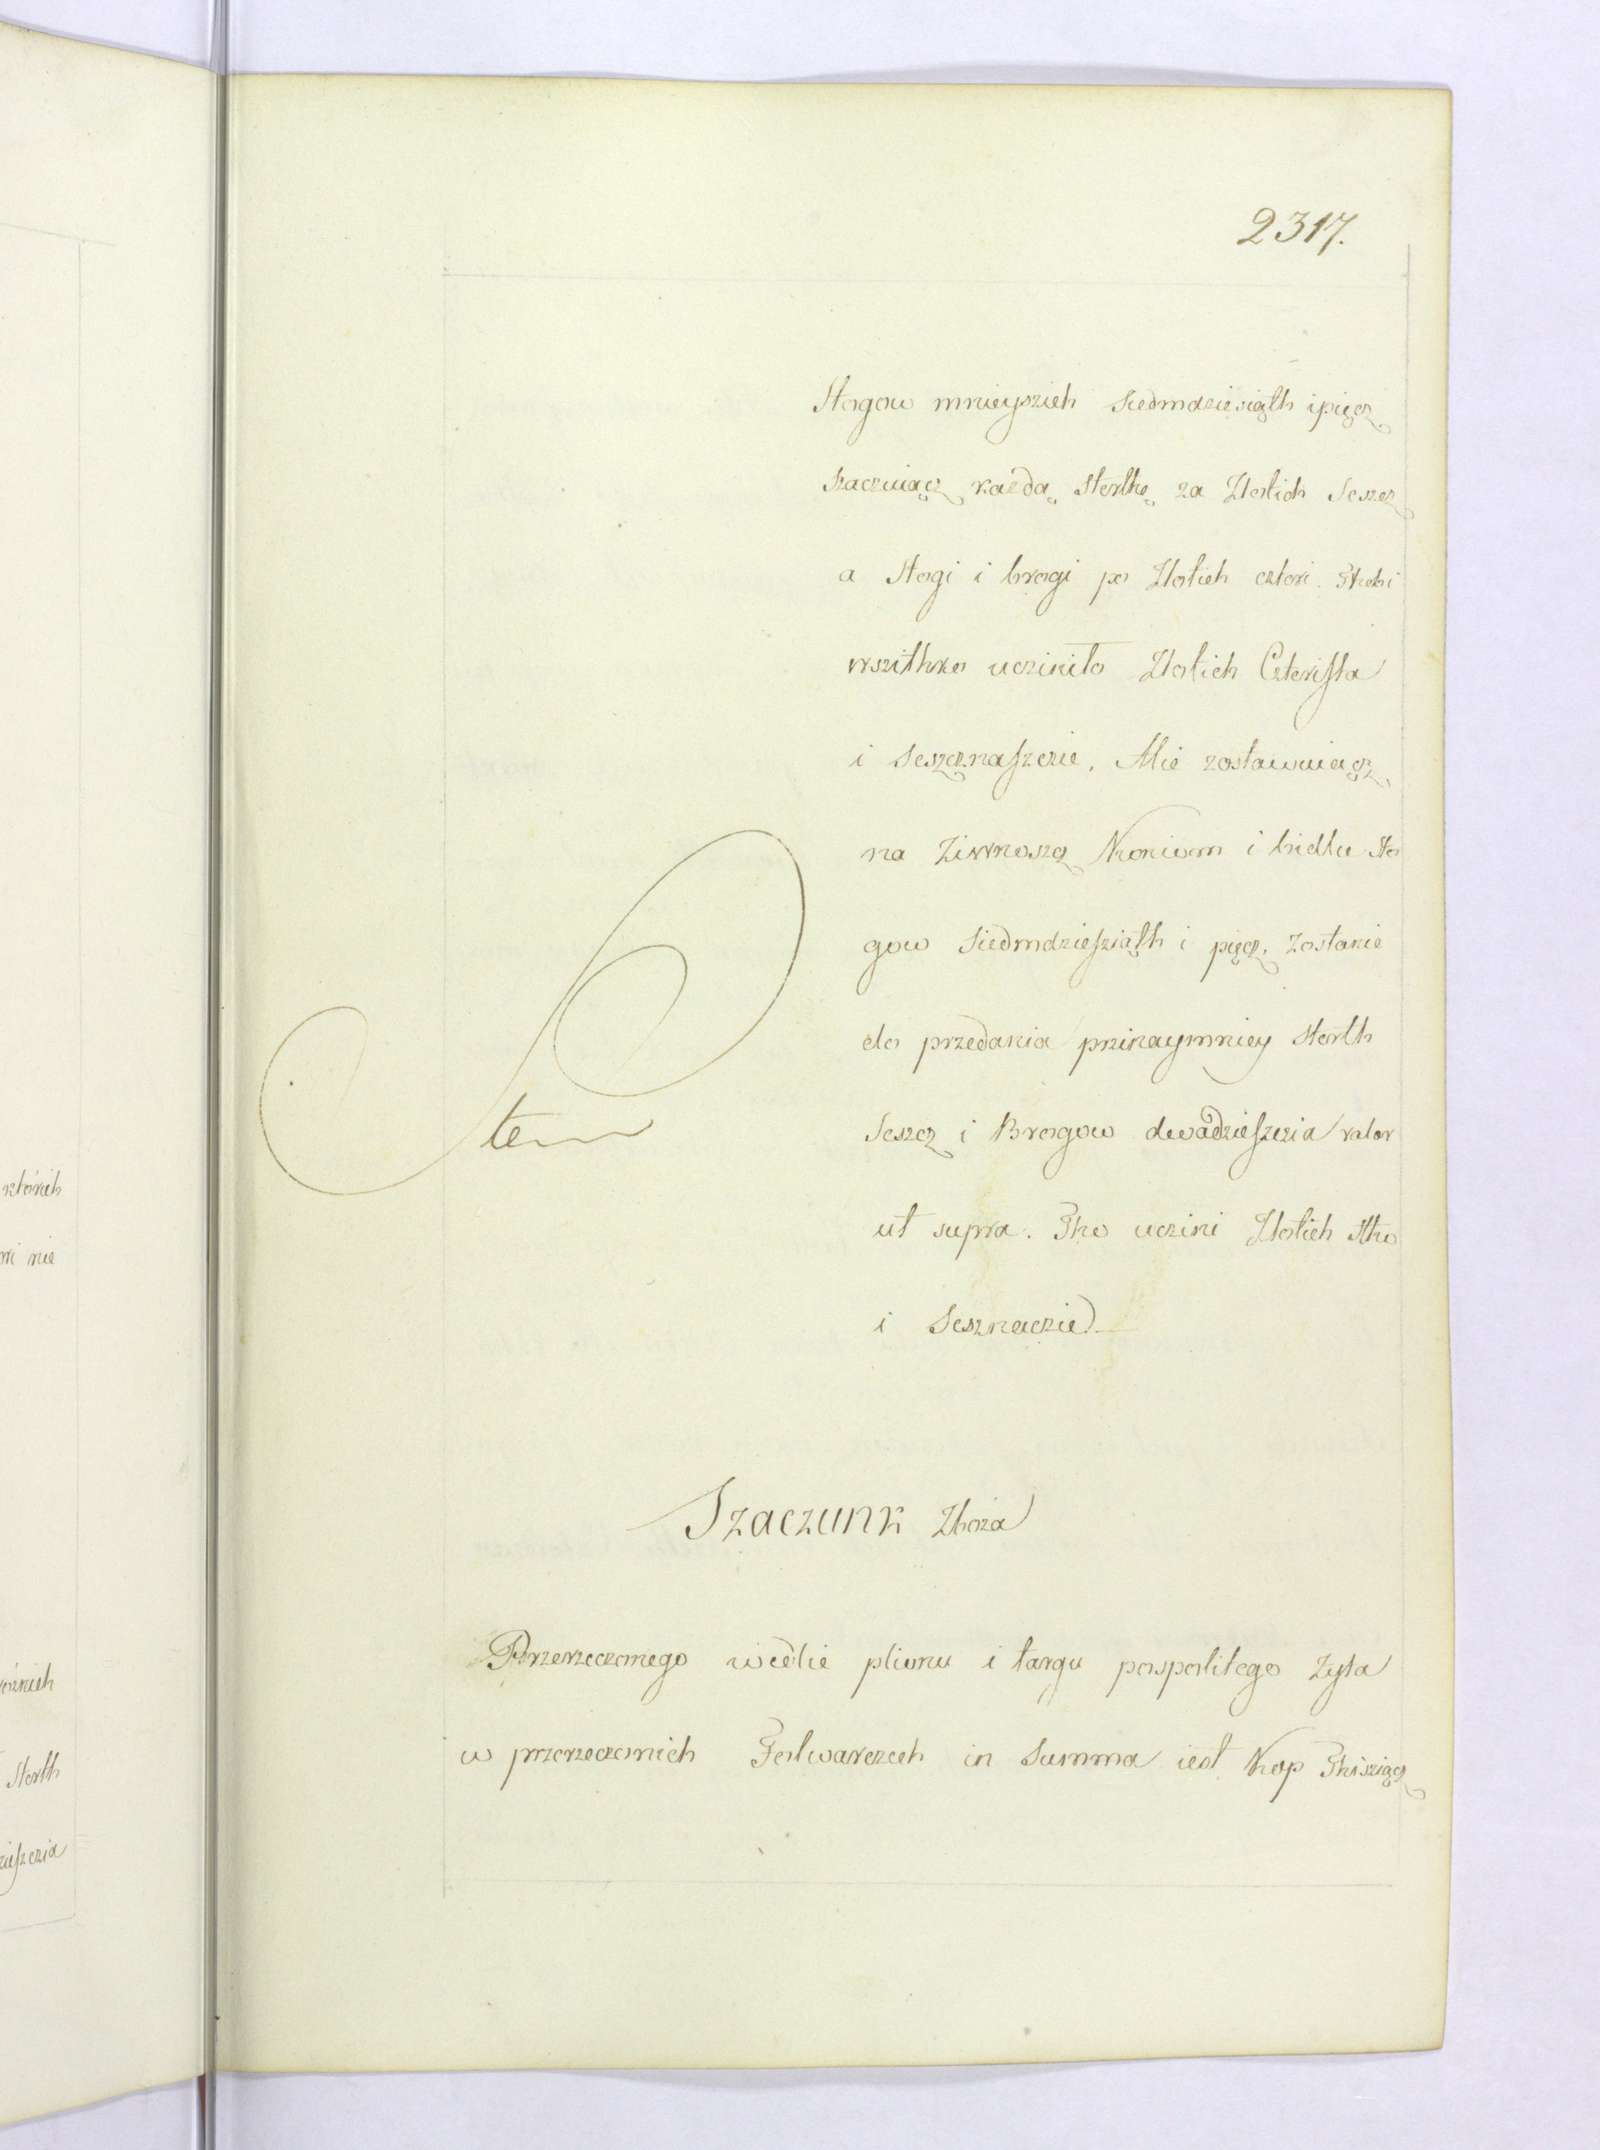 2317.
Stogow mnieyszich siedmdziesiąth i pięcz
szaczuiącz każdą sterthę za Złotich Seszcz
a Stogi i brogi po Złotich cztori. Thobi
wszithko ucziniło Złotich Czterista
i Seszcznaszczie. Alie zostawuiącz
na Ziwnoszcz Koniom i bidłu Sto
gow Siedmdziesziąth i pięcz, zostanie
do przedania przinaymniey Sterth
Item
Seszcz i Brogow dwadzieszczia valor
ut supra. Tho uczini Złotich Stho
i Sesznaczie
Szaczunk Zboża
Przerzeczonego wedlie plionu i targu pospolitego Zyta
w przerzeczonich Folwarczech in Summa iest Kop Thisziącz
którich
nie
Sterth